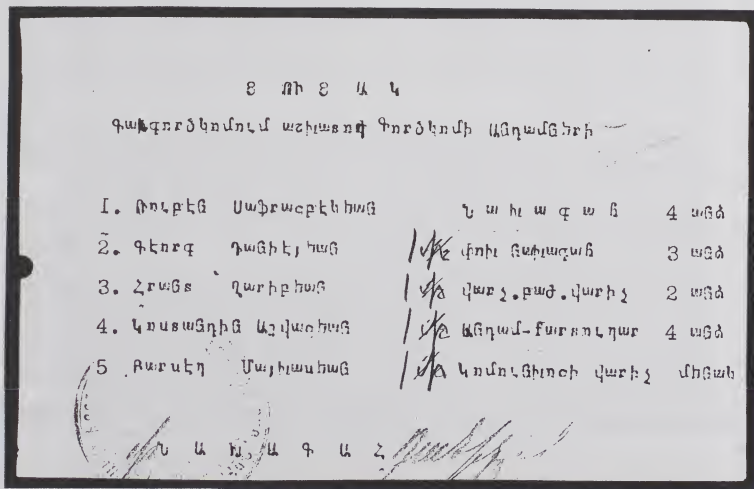 Ց ՈՒ Ց Ա Կ
Գավգործկոմում աշխատող Գործկոմի Անդամների
1. Ռուբէն Սաֆրազբէկեան Ն ա խ ա գ ա հ 4 անձ
2. Գէորգ Դանիէլեան փոխ նախագահ 3 անձ
3. Հրանտ Ղարիբեան վարչ.բաժ.վարիչ 2 անձ
4. Կոստանդին Աշվազեան Անդամ-Քարտուղար 4 անձ
5 Բարսէղ Մայիլասեան Կոմունխոզի վարիչ միՅնակ
Ն Ա Խ Ա Գ Ա Հ